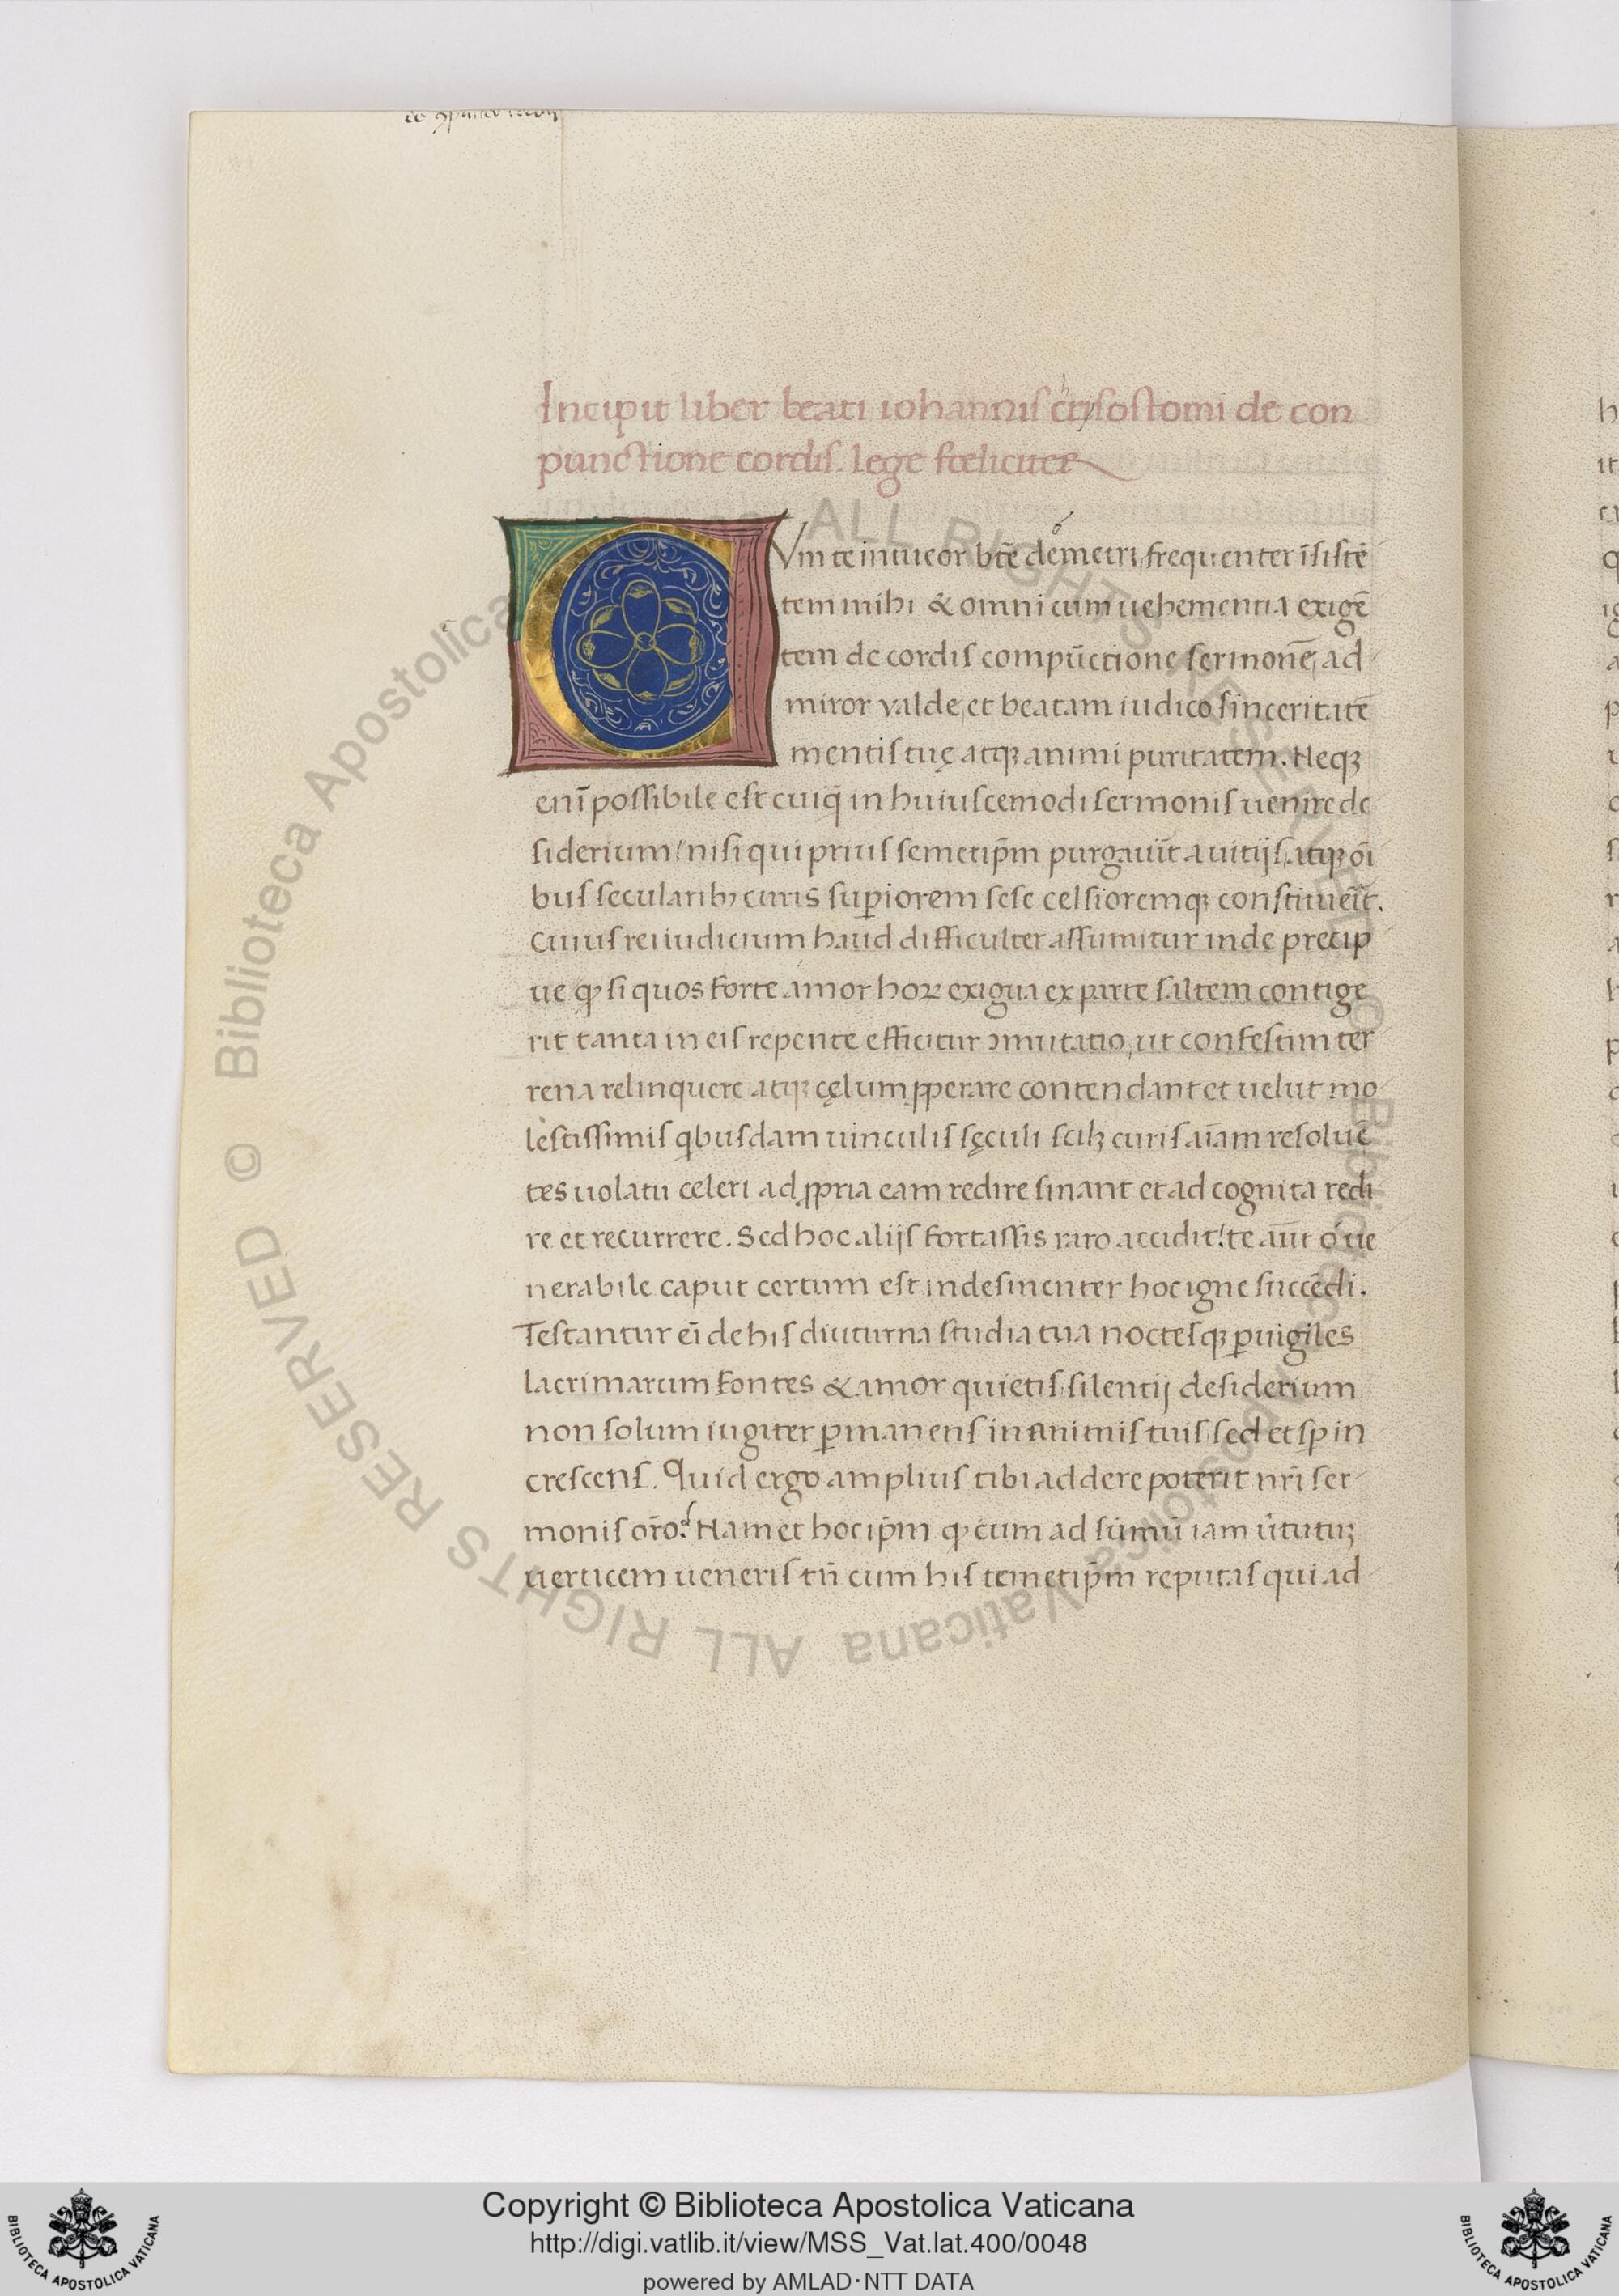 Incipit liber beati iohannis crisostomi de con
punctione cordis. lege fœliciter
CVm te intueor btẽ demetri, frequenter ĩsistẽ
tem mihi & omni cum uehementia exigẽ
tem de cordis compũctione sermonẽ, ad
miror valde, et beatam iudico sinceritatẽ
mentis tuę atqꝫ animi puritatem. Neqꝫ
enĩ possibile est cuiq̃ in huiuscemodi sermonis uenire de
siderium! nisi qui prius semetip̃m purgauit̃ a uitijs, atqꝫ oĩ
bus secularibꝫ curis suꝑiorem sese celsioremqꝫ constituerit̃.
Cuius rei iudicium haud difficulter assumitur inde precip
ue ꝙ si quos forte amor hoꝝ exigua ex parte saltem contige
rit tanta in eis repente efficitur ꝯmutatio, ut confestim ter
rena relinquere atqꝫ cęlum ꝓperare contendant et uelut mo
lestissimis qibusdam uinculis sęculi scilꝫ curis aĩam resoluẽ
tes uolatu celeri ad ꝓpria eam redire sinant et ad cognita redi
re et recurrere. Sed hoc alijs fortassis raro accidit! te aũt ó ue
nerabile caput certum est indesinenter hoc igne succẽdi.
Testantur eĩ de his diuturna studia tua noctesqꝫ ꝑuigiles
lacrimarum fontes & amor quietis, silentij desiderium
non solum iugiter ꝑmanens in animis tuis, sed et sp in
crescens. Quid ergo amplius tibi addere poterit nr̃i ser
monis or̃o? Nam et hoc ip̃m ꝙ cum ad sũmũ iam ũtutuꝫ
uerticem ueneris tñ cum his temetip̃m reputas qui ad
© Biblioteca Apostolica Vaticana ALL RIGHTS RESERVED
Copyright © Biblioteca Apostolica Vaticana
http://digi.vatlib.it/view/MSS_Vat.lat.400/0048
powered by AMLAD·NTT DATA
BIBLIOTECA APOSTOLICA VATICANA
BIBLIOTECA APOSTOLICA VATICANA